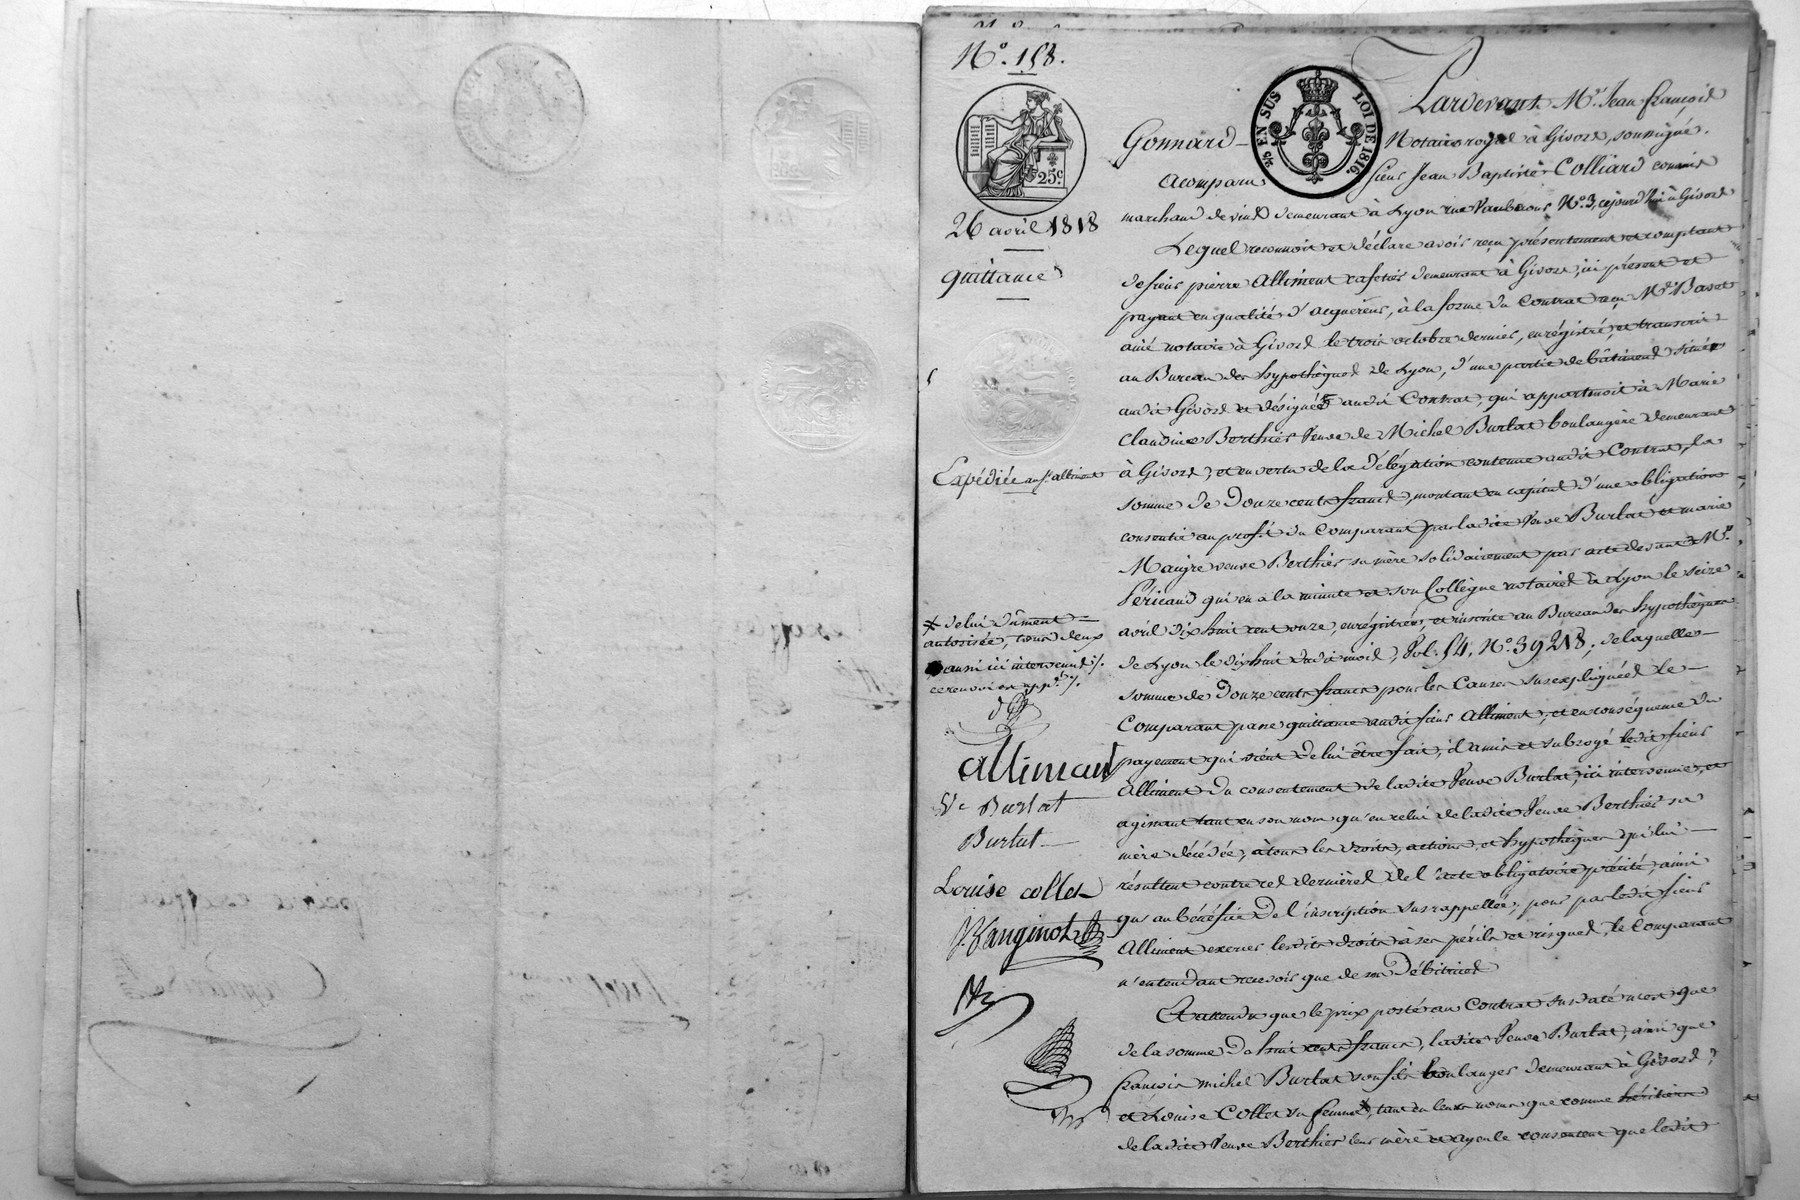 N°. 158.
25 c.
26 avril 1818
quittance
Expédiée au sr. alliment
* de lui dûment
autorisée, tous deux
aussi ici intervenus ./.
ce renvoi app.
alliment
Ve Burlat
Burlat
Louise collet
EN SUS
LOI DE 1816.
Pardevant Me. Jean françois
Gonnard Notaire royal à Givors, soussigné.
A comparu sieur Jean Baptiste Colliard commis
marchand de vins demeurant à Lyon rue N°. 3, cejourd'hui à Givors
Lequel reconnoit et déclare avoir reçu présentement et comptant
de sieur pierre Alliment cafetier demeurant à Givors, ici présent et
payant en qualité d'acquéreur, à la forme du Contrat reçu Me. Basset
ainé notaire à Givors le trois octobre dernier, enrégistré, et transcrit
au Bureau des hypothèques de Lyon, d'une partie de bâtiment située
audit Givors et désignée audit Contrat, qui appartenoit à Marie
Claudine Berthier Veuve de Michel Burlat boulangère demeurant
à Givors, et en vertu de la délégation contenue audit Contrat, la
somme de Douze cents francs, montant en capital d'une obligation
consentie au profit du Comparant par ladite Veuve Burlat et marie
Maigre veuve Berthier sa mère solidairement par acte devant Me.
Péricaud qui en a la minute et son Collègue notaires à Lyon le seize
avril dix huit cent onze, enrégistrée, et inscrite au Bureau des hypothèques
de Lyon le dix huit dudit mois, Vol. 54, N°. 39218, de laquelle
somme de Douze cents francs pour les Causes susexpliquées le
Comparant passe quittance audit sieur Alliment, et en conséquence du
payement qui vient de lui être fait, il a mis et subrogé ledit sieur
Alliment du consentement de ladite Veuve Burlat, ici intervenue, et
agissant tant en son nom qu'en celui de ladite Veuve Berthier sa
mère décédée, à tous les droits, actions, et hypothèques qui lui
résultent contre ces dernières de l'acte obligatoire précité, ainsi
qu'au bénéfice de l'inscription susrappellée, pour par ledit sieur
Alliment exercer lesdits droits à ses périls et risques, le Comparant
n'entendant recevoir que de ses Débitrices
Et attendu que le prix porté au Contrat susdaté n'est que
de la somme de huit cents francs, ladite Veuve Burlat, ainsi que
françois michel Burlat son fils boulanger demeurant à Givors
et Louise Collet sa femme *, tant en leurs noms que comme héritiers
de ladite Veuve Berthier leur mère et ayeule consentent que ledit